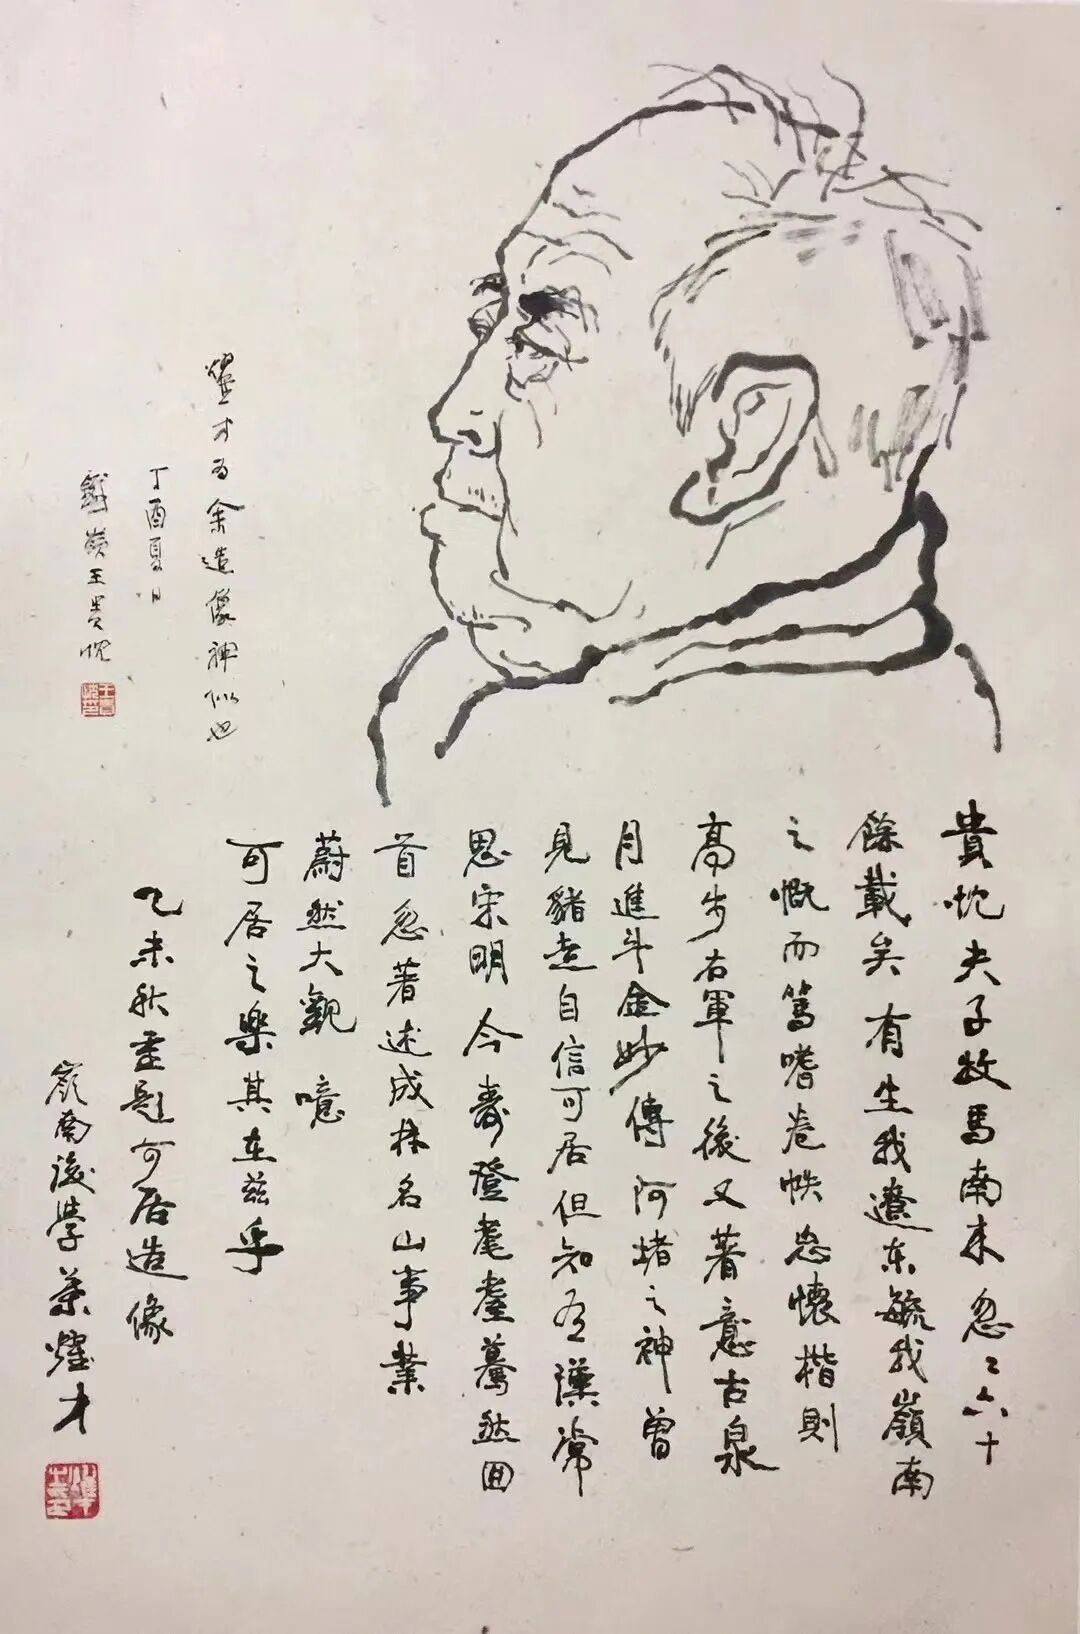 貴忱夫子牧馬南來忽〻六十
餘載矣有生我遼东毓我嶺南
之慨而篤嗜卷帙忠懷楷則
高步右軍之後又著意古泉
月進斗金妙傳阿堵之神曾
見豬走自信可居但知為漢常
思宋明今壽登耄耋驀然回
首忽著述成林名山事業
蔚然大觀噫
可居之樂其在兹乎
乙未秋畫題可居造像
嶺南後學葉燿才
燿才为余造像神似也
丁酉夏日
鐵嶺王贵忱